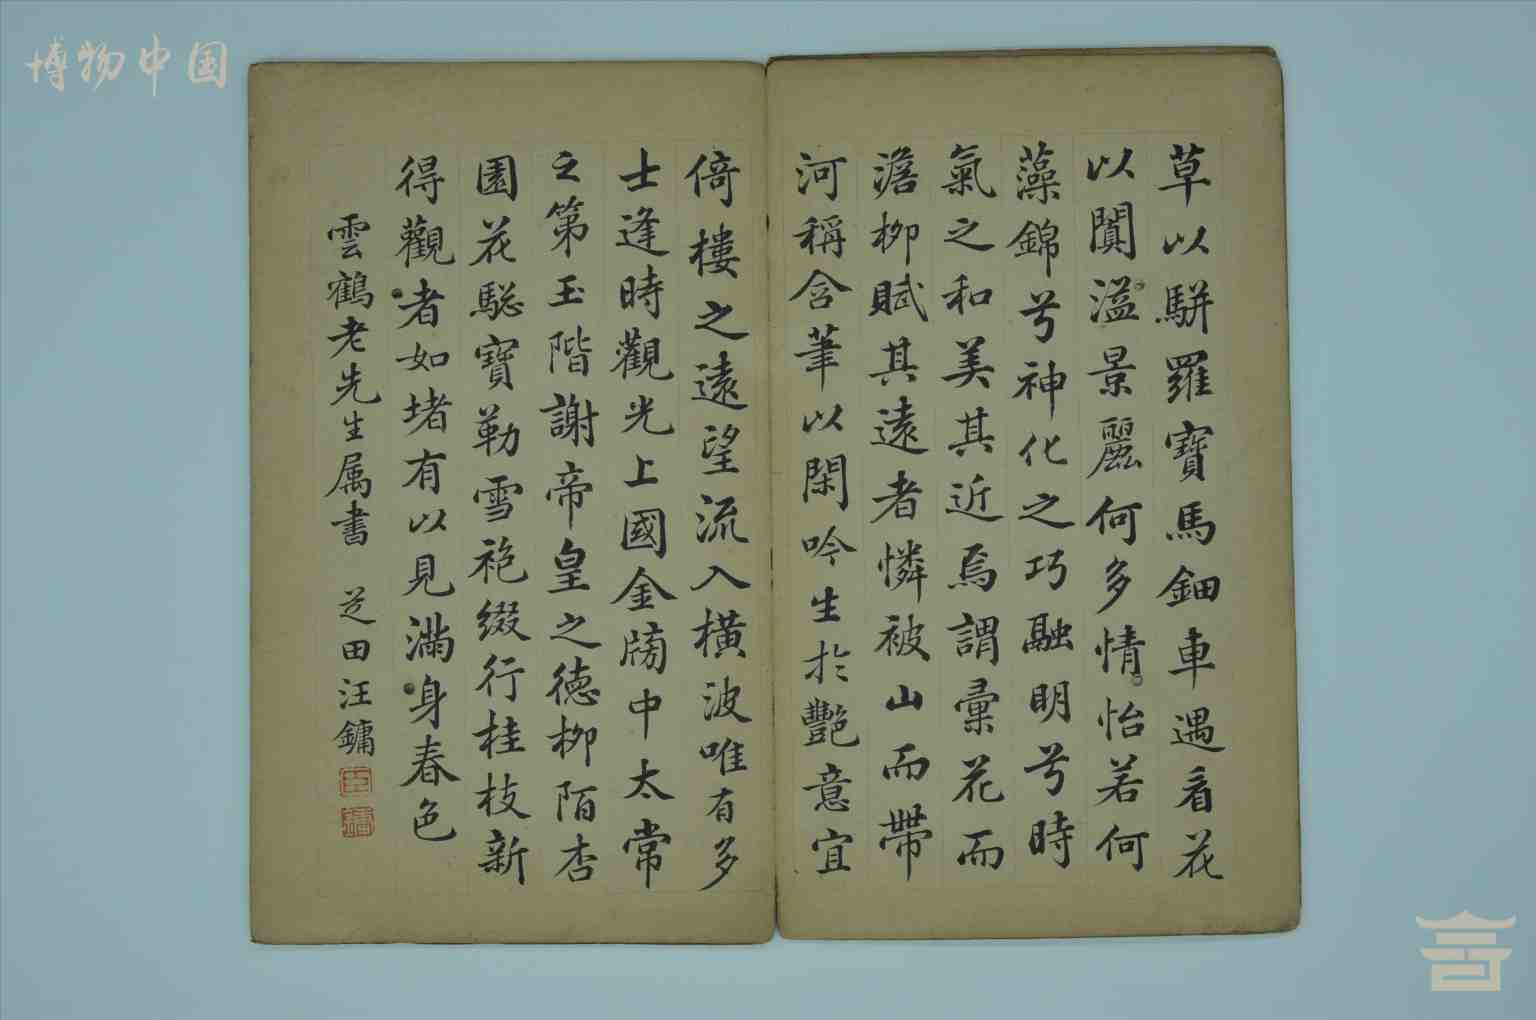 博物中国
草以駢羅寶馬鈿車遇看花
以闐溢景麗何多情怡若何
藻錦兮神化之巧融明兮時
氣之和美其近焉謂彙花而
澹柳賦其遠者憐被山而帶
河稱含筆以閑吟生於艷意宜
倚樓之遠望流入橫波唯有多
士逢時觀光上國金牓中太常
之第玉階謝帝皇之德柳陌杏
園花驄寶勒雪袍綴行桂枝新
得觀者如堵有以見滿身春色
雲鶴老先生属書 芝田汪鏞